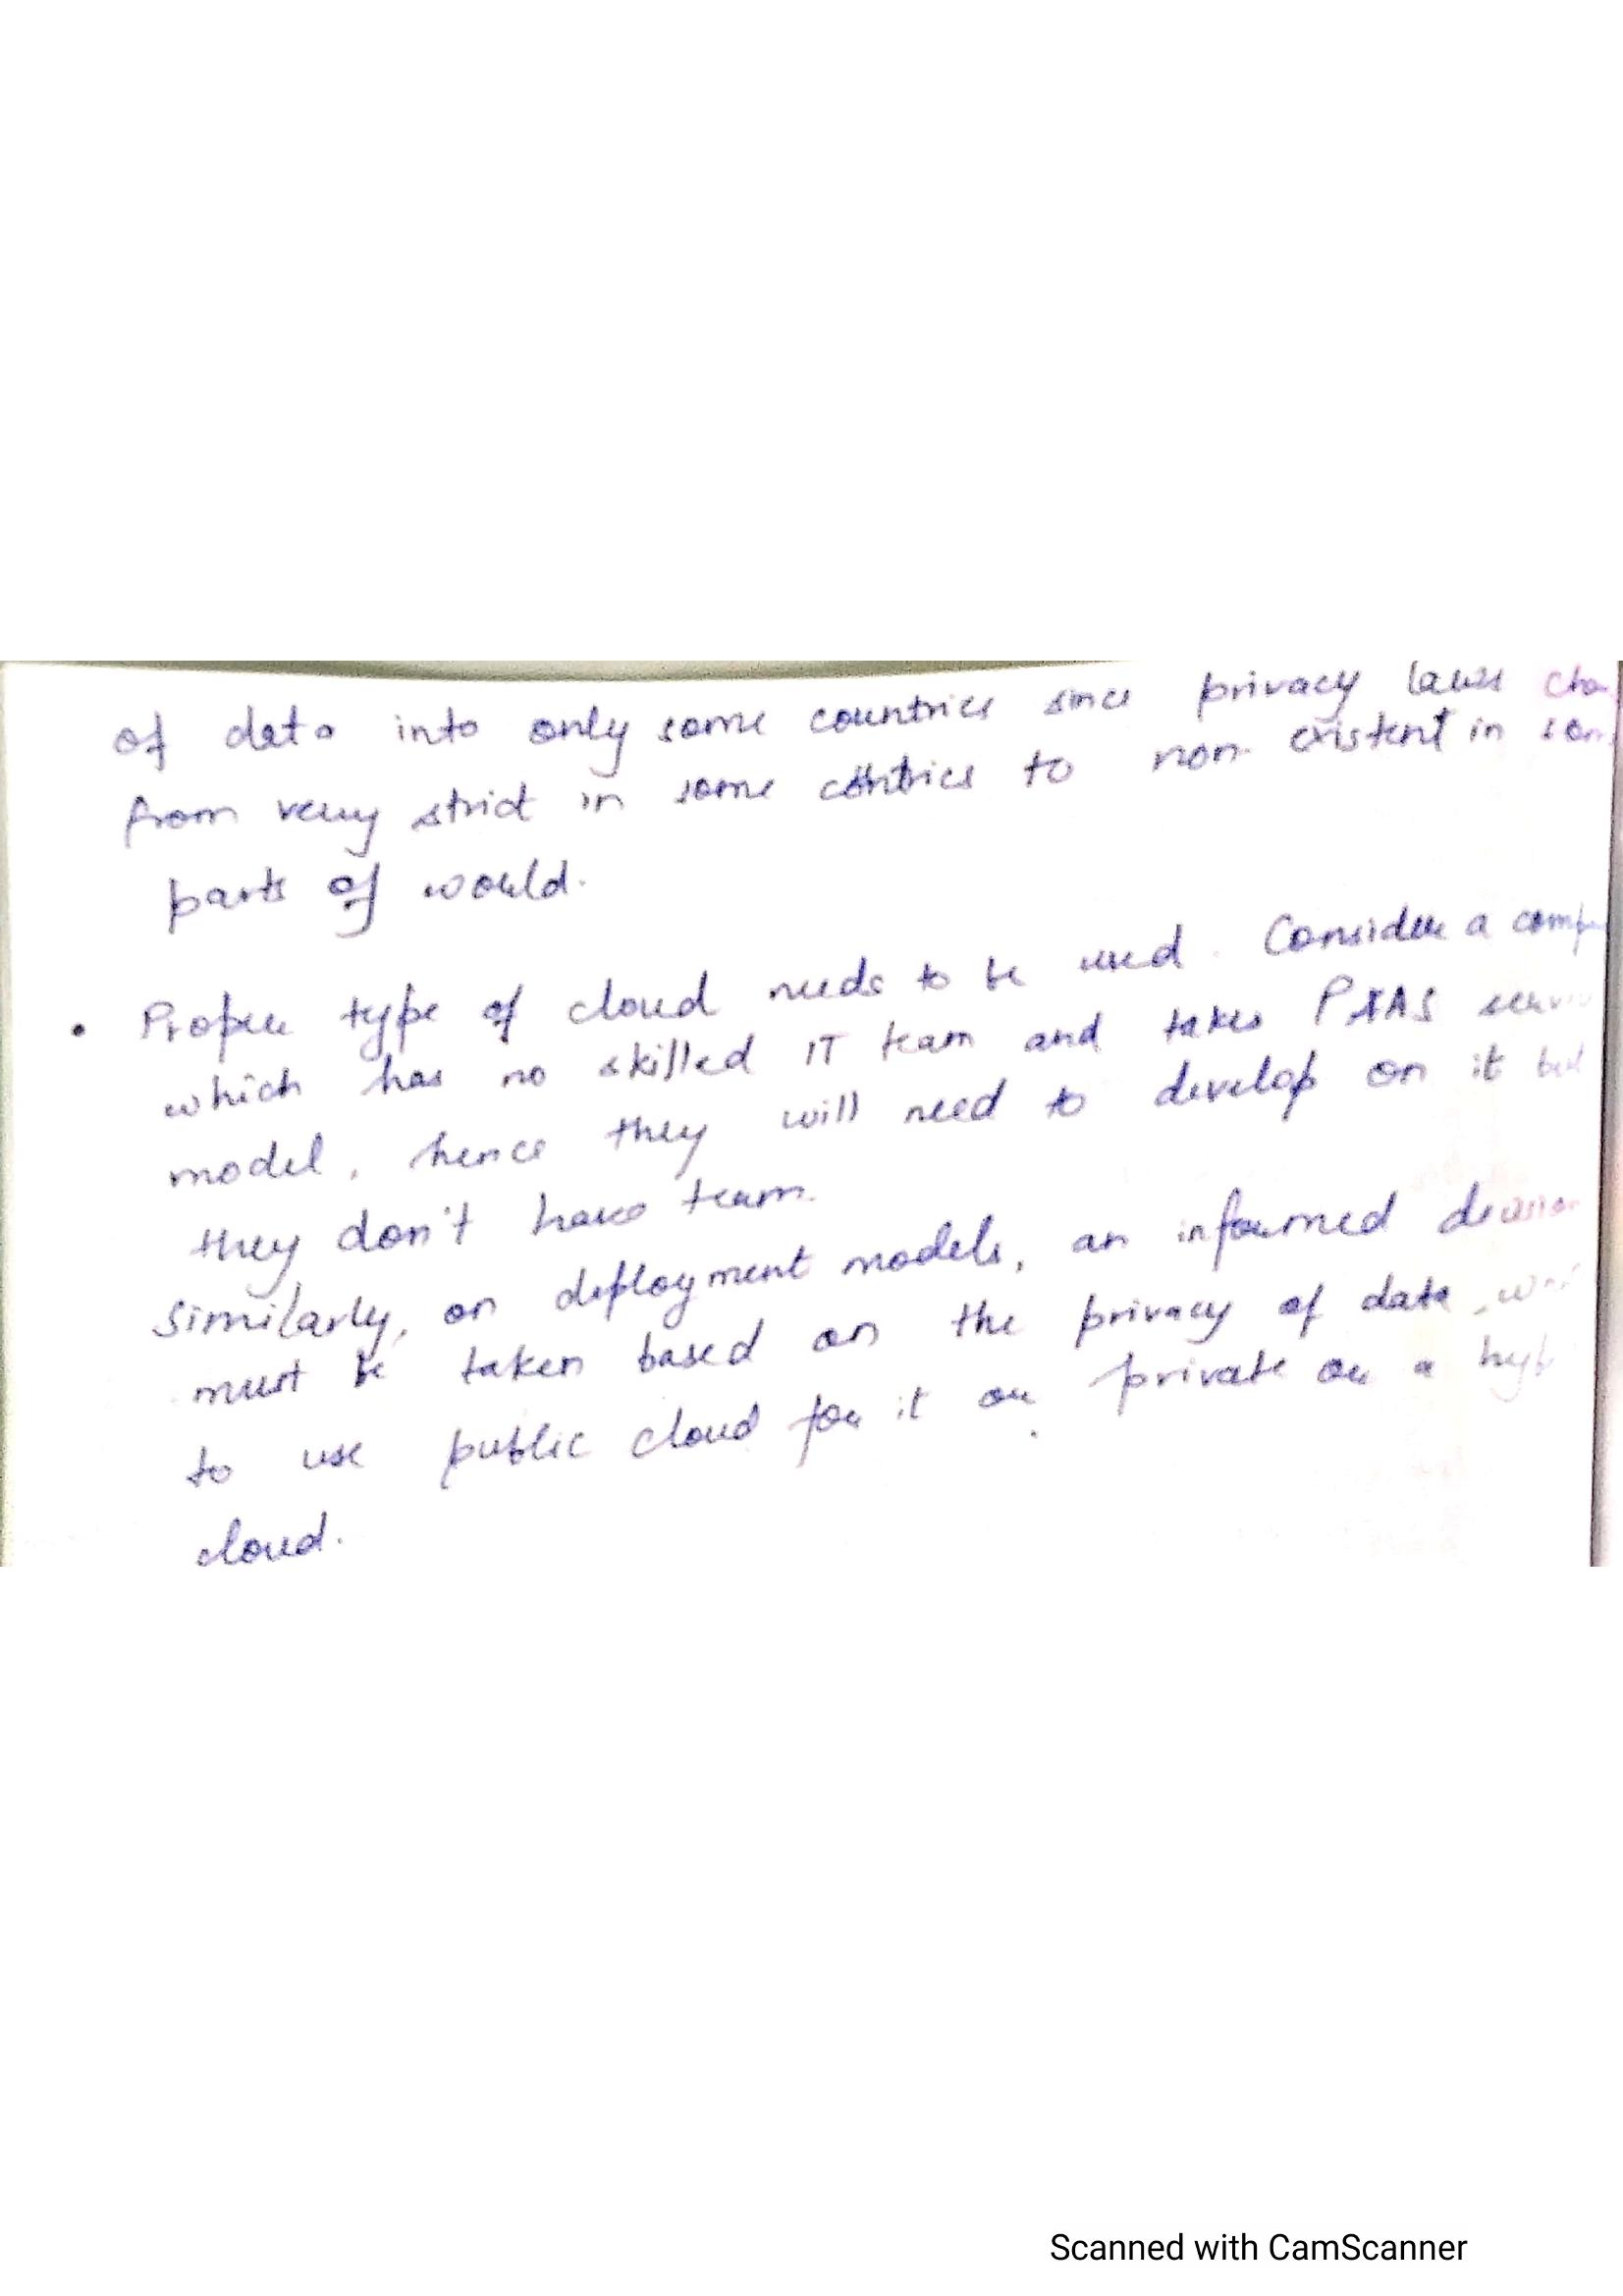 of data into only some countries since privacy laws cha
from very strict in some cntries to non existent in som
parts of world.
• Proper type of cloud needs to be used. Consider a comp
which has no skilled IT team and takes PAAS servi
model, hence they will need to develop on it but
they don't have team.
Similarly, on deployment models, an informed decision
must be taken based on the privacy of data,
to use public cloud for it or private or a hyb
cloud.
Scanned with CamScanner